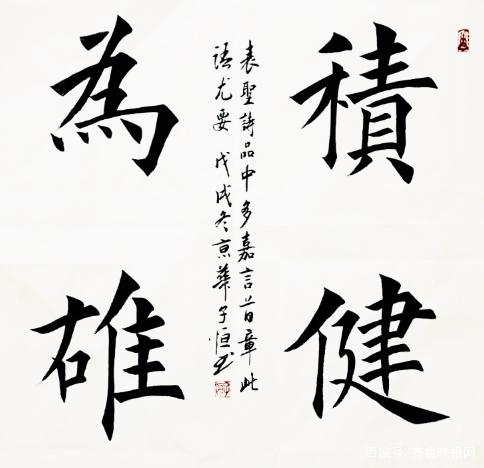 積健
為雄
表聖詩品中多嘉言首章此
語尤要 戊戌冬京華子恒书
百家号/齐鲁晚报网